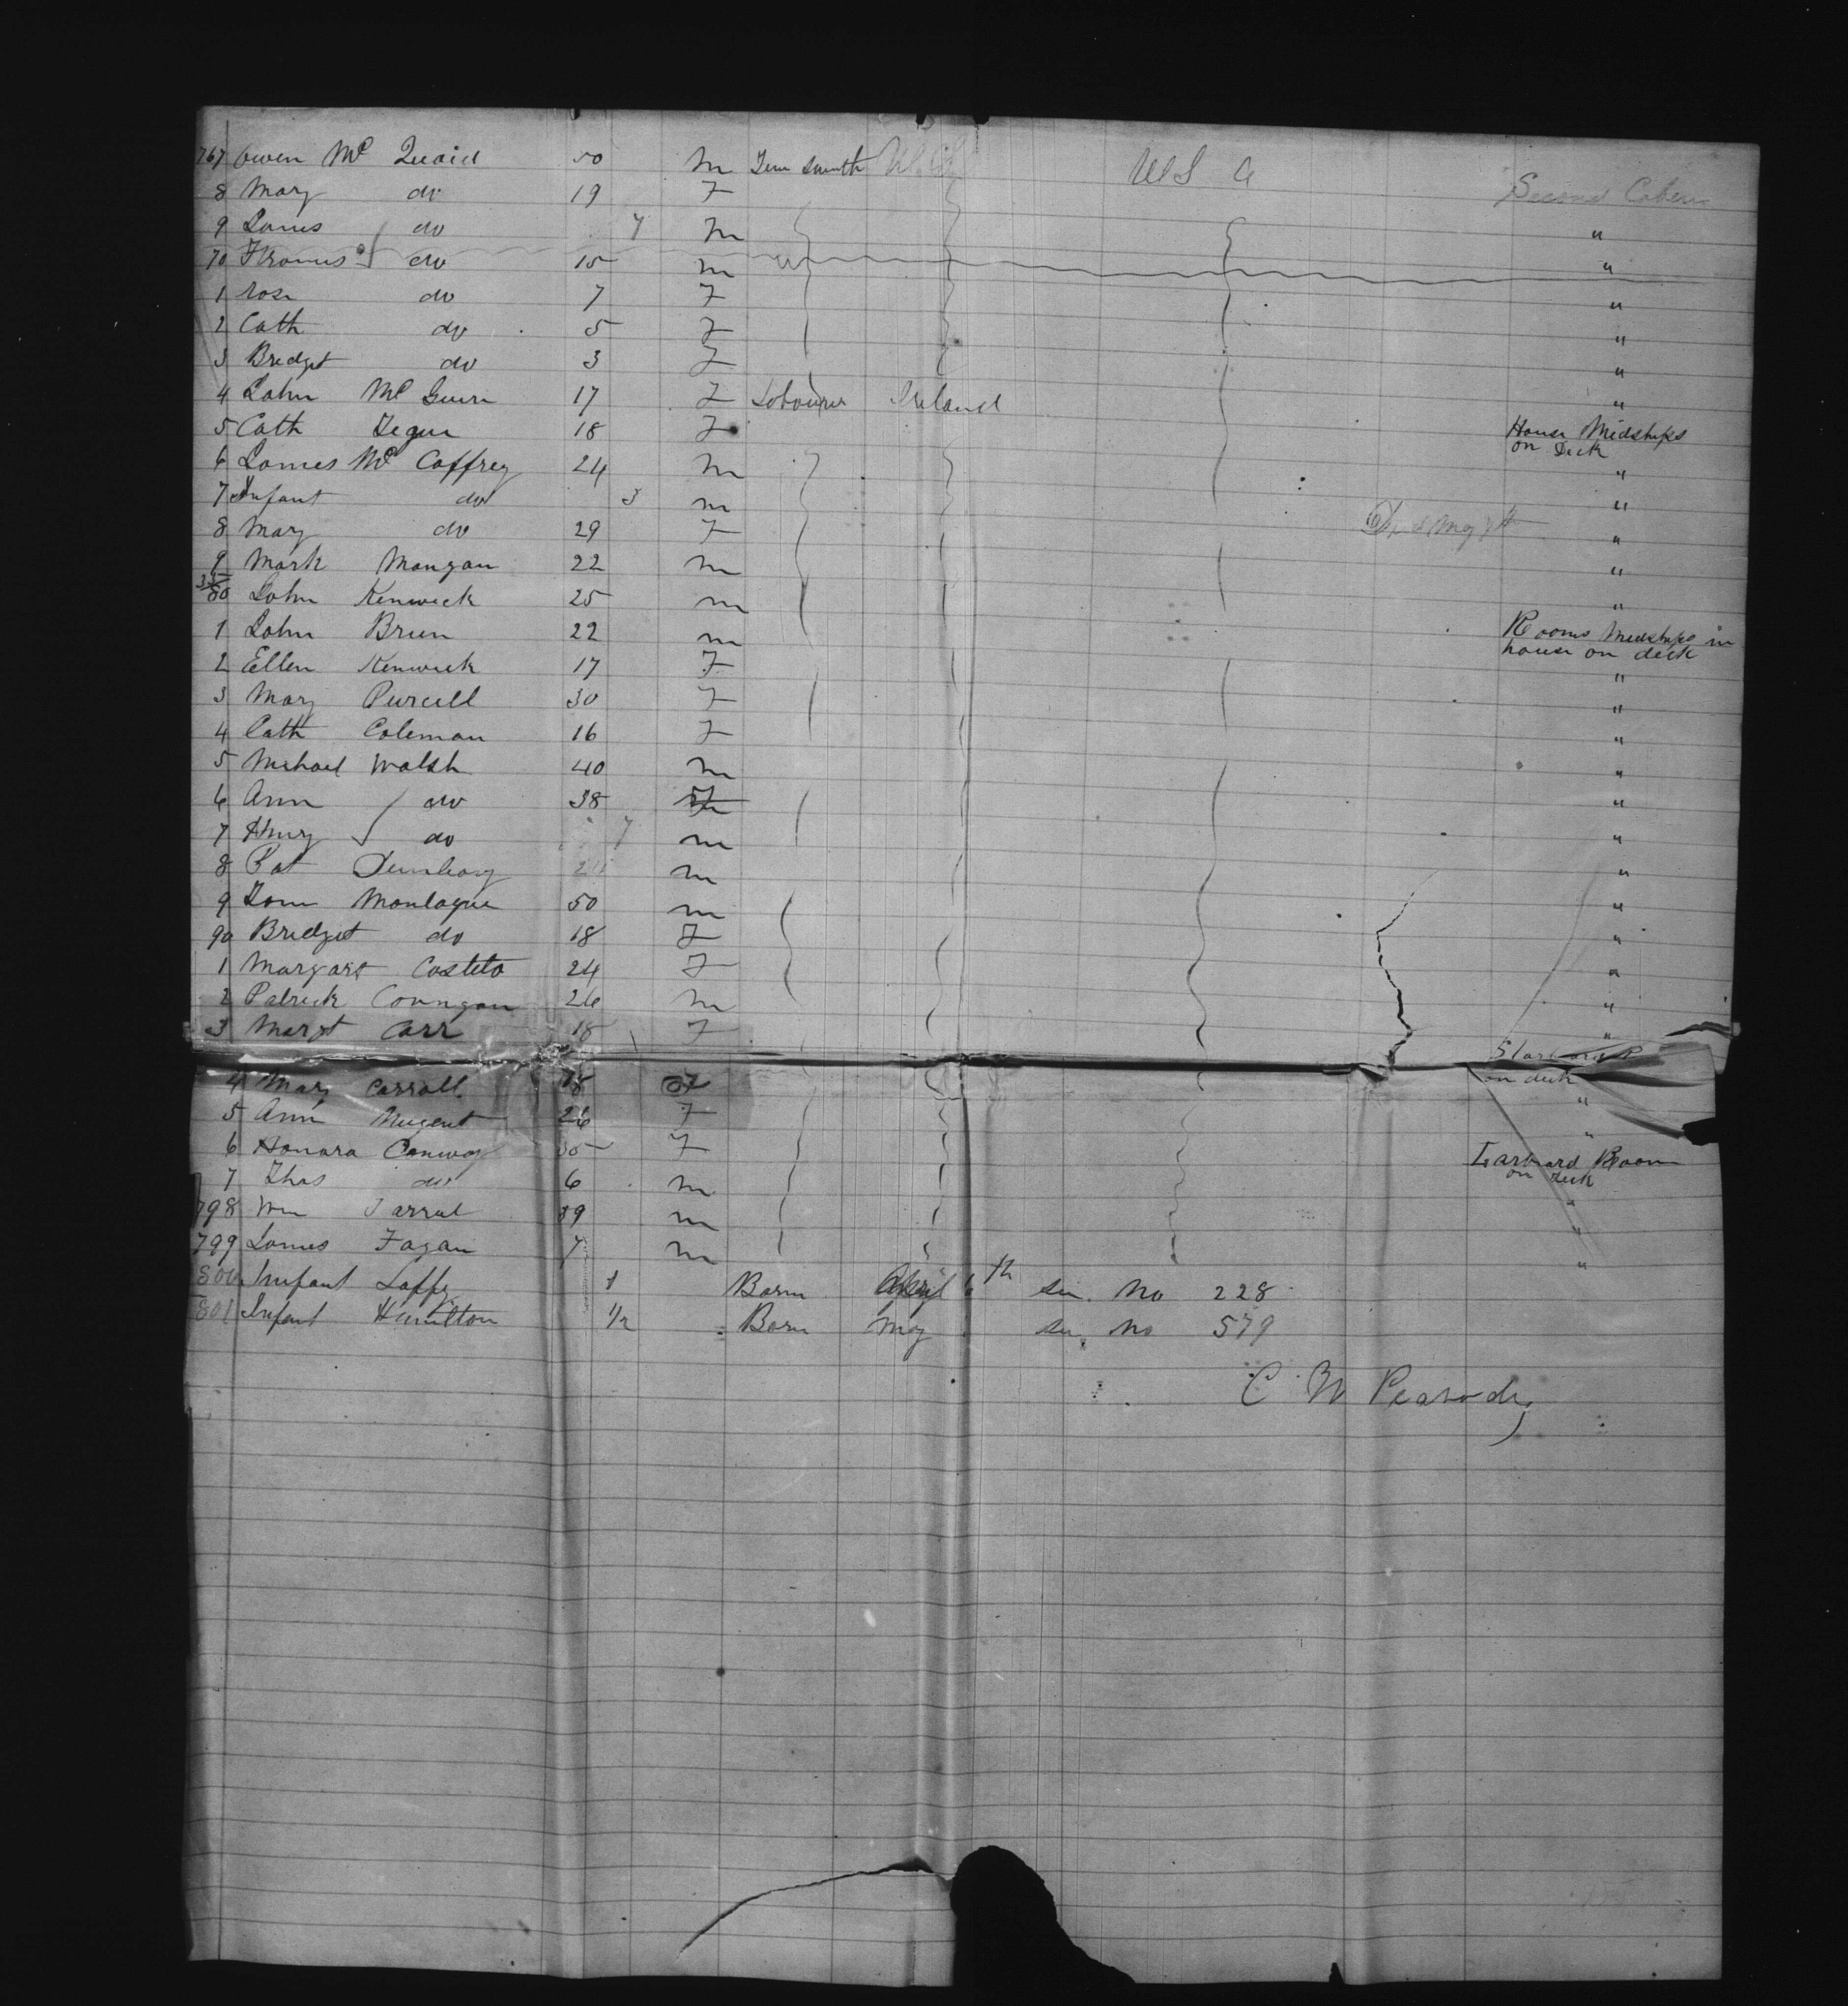 767 Owen Mc Quaid 50 m Tin Smith U.S. U S A Second Caben
8 Mary do 19 F
9 James do 7 m "
70 Thomas do 15 m "
1 rose do 7 F "
2 Cath do 5 F "
3 Bridget do 3 F "
4 John Mc Guin 17 F Labourer Ireland "
5 Cath 18 F House Midships on Deck
6 James Mc Caffrey 24 m "
7 Infant do 3 m "
8 Mary do 29 F "
9 Mark Mangan 22 m "
80 John Kenwick 25 m "
1 John Brien 22 m Rooms Midships in house on deck
2 Ellen Kenwick 17 F "
3 Mary Purcell 30 F "
4 Cath Coleman 16 F "
5 Michael Walsh 40 m "
6 Ann do 38 "
7 Henry do 7 m "
8 Pat m "
9 Tom Montague 50 m "
90 Bridget do 18 F "
1 Margart Costelo 24 F "
2 Patrick 26 m "
3 Margt Carr 18 F "
4 Mary Carroll 18 F on deck
5 Ann Nugent 26 F "
6 Honara Conway 35 F Larboard Room on Deck
7 Thos do 6 m "
798 Wm Farral 39 m "
799 James Fagan 7 m "
800 Infant Laffy 1 Born April 6th see No 228
801 Infant Hamilton 1/2 Born May see No 579
C W Peabody